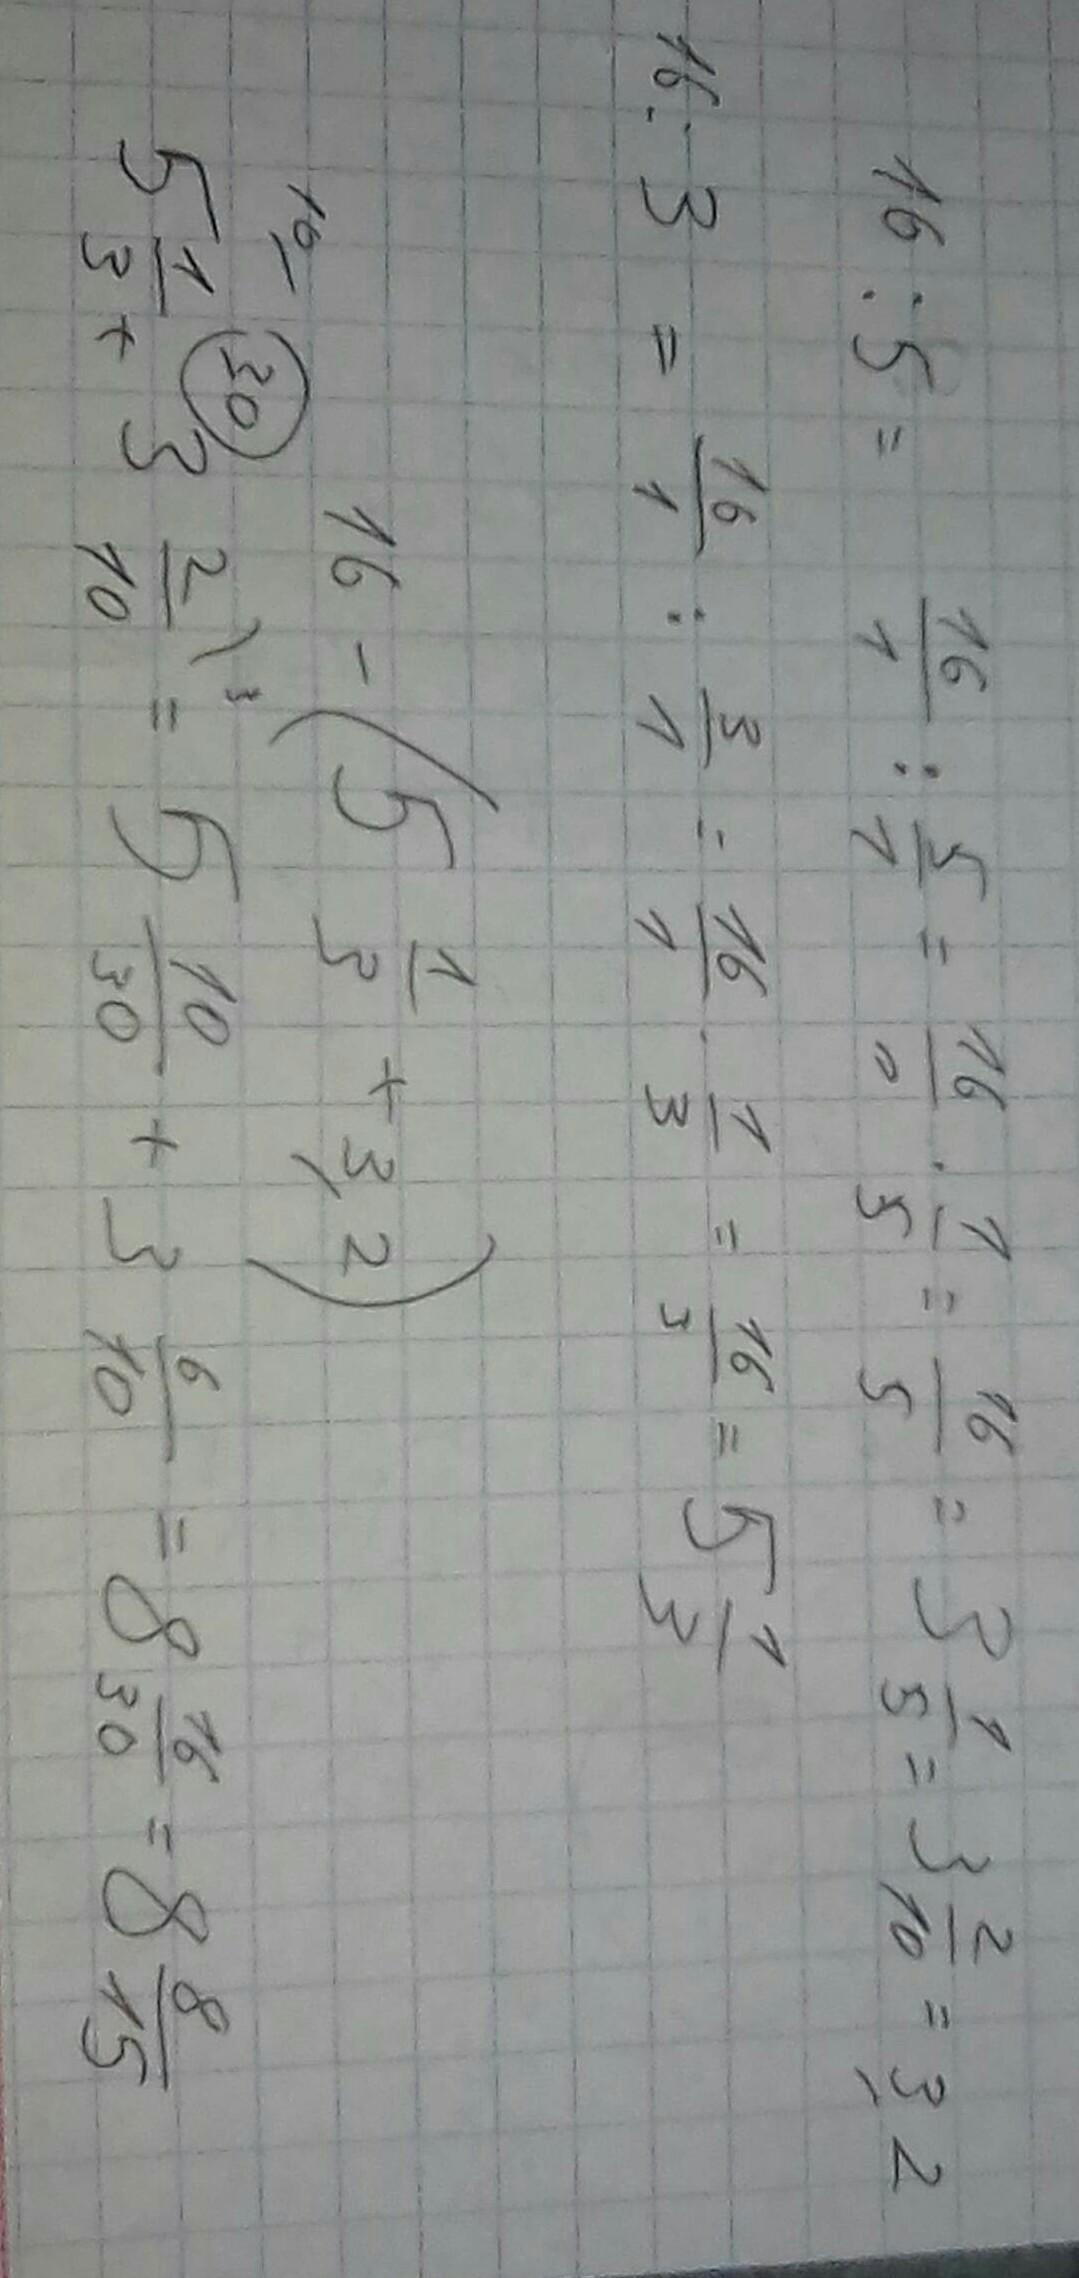 16 : 5 = 16/1 : 5/1 = 16/1 · 1/5 = 16/5 = 3 1/5 = 3 2/10 = 3,2
16 : 3 = 16/1 : 3/1 = 16/1 · 1/3 = 16/3 = 5 1/3
16 - (5 1/3 + 3,2)
10 30 3
5 1/3 + 3 2/10 = 5 10/30 + 3 6/10 = 8 16/30 = 8 8/15